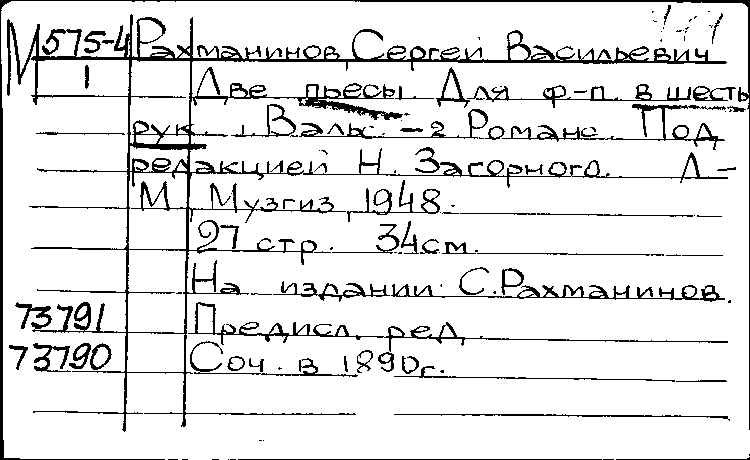 М 575-4 Рахманинов, Сергей Васильевич
1 Две пьесы. Для ф.-п. в шесть
рук. 1. Вальс. - 2. Романс. Под
редакцией Н. Загорного. Л -
М, Музгиз, 1948.
27 стр. 34 см.
На издании: С. Рахманинов.
73791 Предисл. ред.
73790 Соч. в 1890 г.